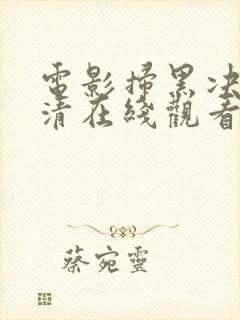 電影掃黑決
清在綫觀看
蔡宛靈